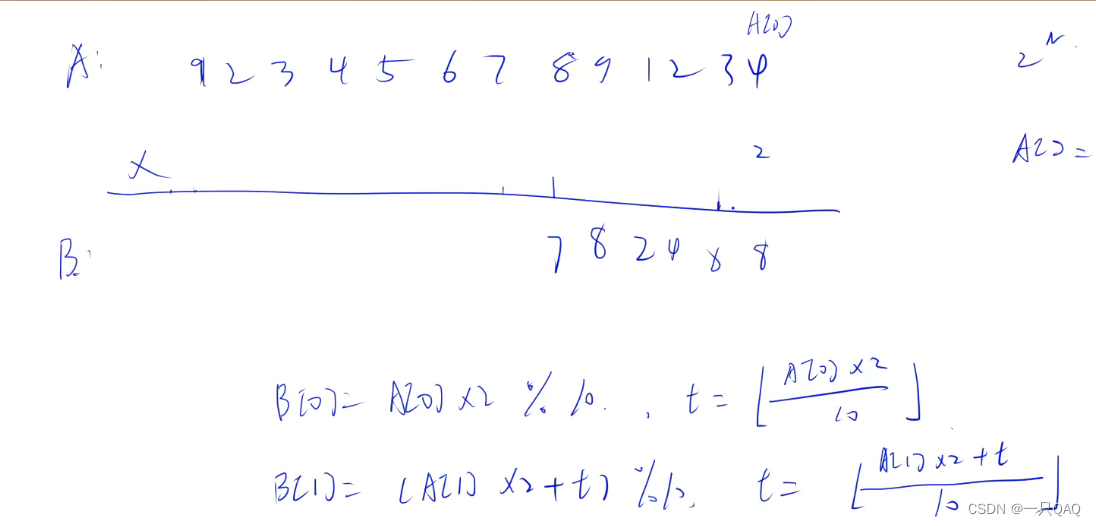 A[0]
A: 9 2 3 4 5 6 7 8 9 1 2 3 4
2^N
× 2
A[] =
B: 7 8 2 4 6 8
B[0] = A[0] × 2 % 10. , t = ⌊A[0] × 2 / 10⌋
B[1] = (A[1] × 2 + t) % 10, t = ⌊A[1] × 2 + t / 10⌋
CSDN @一只QAQ